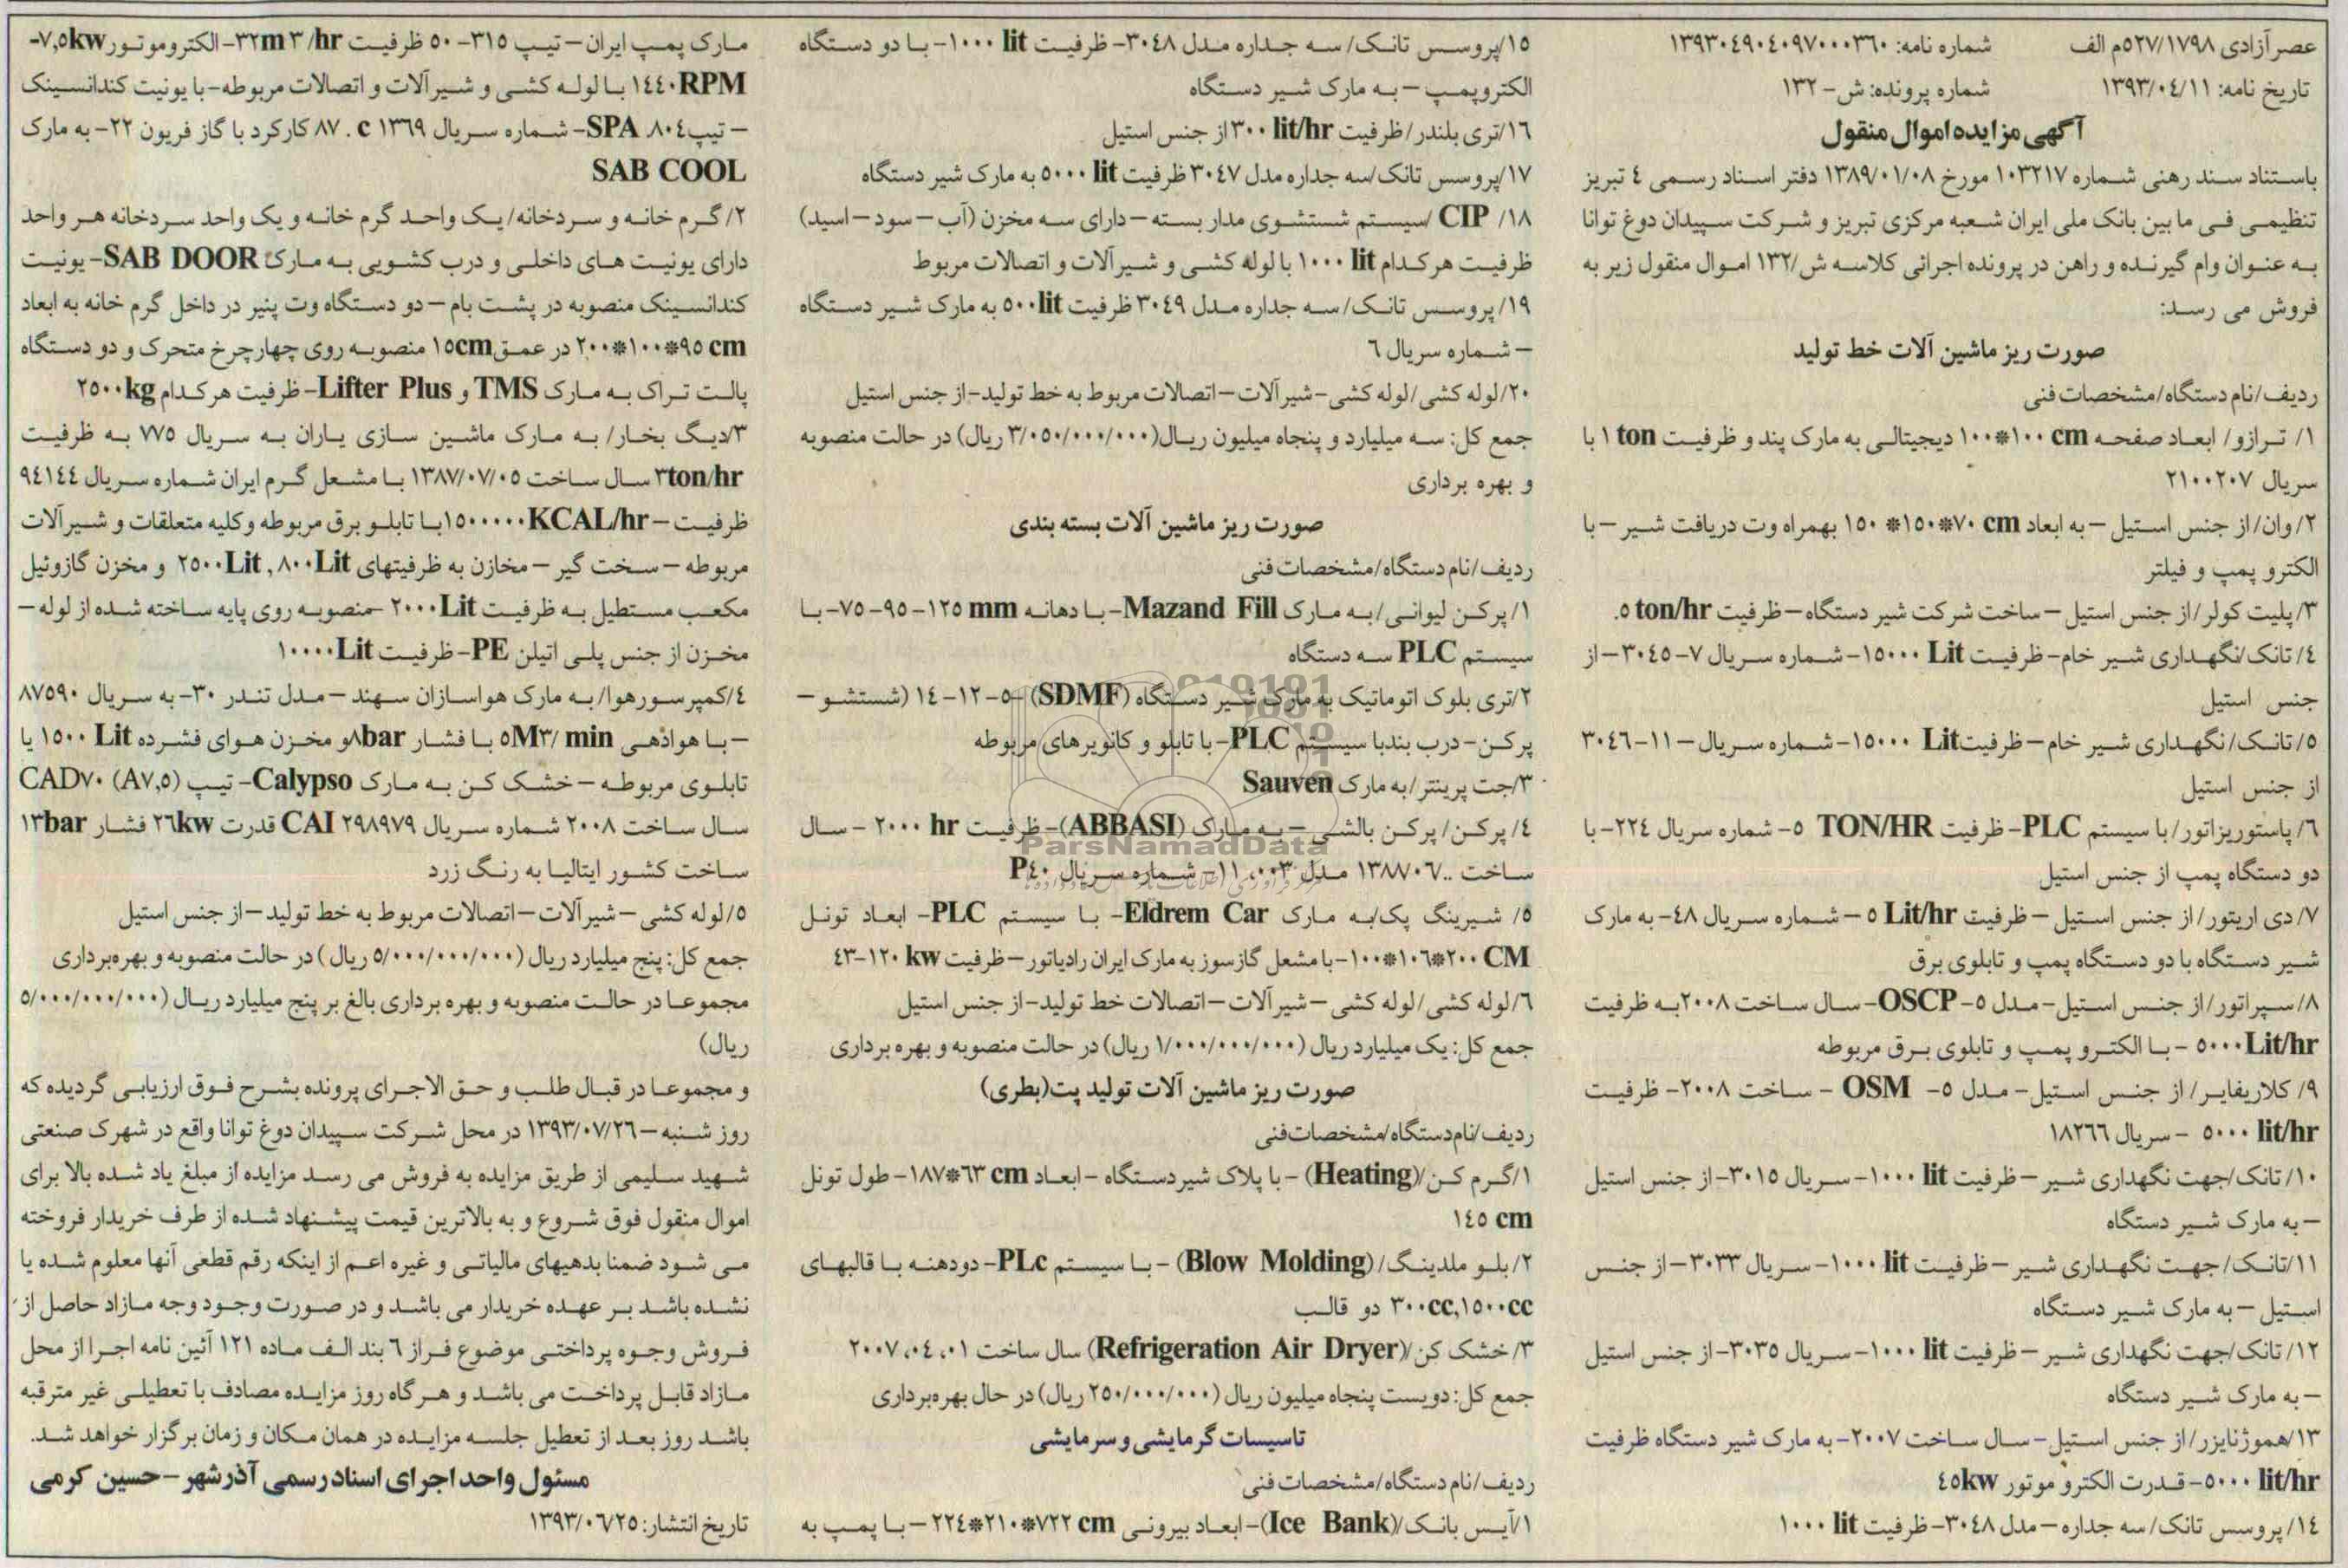 عصر آزادی ٥٢٧/١٧٩٨م الف شماره نامه: ١٣٩٣٠٤٩٠٤٠٩٧٠٠٠٣٦٠
تاریخ نامه: ١٣٩٣/٠٤/١١ شماره پرونده: ش- ١٣٢
آگهی مزایده اموال منقول
باستناد سند رهنی شماره ١٠٣٢١٧ مورخ ١٣٨٩/٠١/٠٨ دفتر اسناد رسمی ٤ تبریز
تنظیمی فی ما بین بانک ملی ایران شعبه مرکزی تبریز و شرکت سپیدان دوغ توانا
به عنوان وام گیرنده و راهن در پرونده اجرائی کلاسه ش/١٣٢ اموال منقول زیر به
فروش می رسد:
صورت ریز ماشین آلات خط تولید
ردیف/نام دستگاه/مشخصات فنی
١/ ترازو/ ابعاد صفحه ١٠٠*١٠٠ cm دیجیتالی به مارک پند و ظرفیت ١ ton با
سریال ٢١٠٠٢٠٧
٢/وان/از جنس استیل – به ابعاد ١٥٠ *١٥٠*٧٠ cm بهمراه وت دریافت شیر – با
الکترو پمپ و فیلتر
٣/پلیت کولر/از جنس استیل – ساخت شرکت شیر دستگاه – ظرفیت ٥ ton/hr.
٤/تانک/نگهداری شیر خام- ظرفیت ١٥٠٠٠ Lit- شماره سریال ٧-٣٠٤٥ – از
جنس استیل
٥/تانک/نگهداری شیر خام – ظرفیت١٥٠٠٠ Lit- شماره سریال – ١١-٣٠٤٦
از جنس استیل
٦/پاستوریزاتور/با سیستم PLC- ظرفیت ٥ TON/HR- شماره سریال ٢٢٤- با
دو دستگاه پمپ از جنس استیل
٧/دی اریتور/از جنس استیل – ظرفیت ٥ Lit/hr – شماره سریال ٤٨- به مارک
شیر دستگاه با دو دستگاه پمپ و تابلوی برق
٨/سپراتور/از جنس استیل- مدل ٥- OSCP- سال ساخت ٢٠٠٨ به ظرفیت
٥٠٠٠Lit/hr – با الکترو پمپ و تابلوی برق مربوطه
٩/ کلاریفایر/از جنس استیل- مدل ٥- OSM – ساخت ٢٠٠٨- ظرفیت
٥٠٠٠ lit/hr – سریال ١٨٢٦٦
١٠/تانک/جهت نگهداری شیر – ظرفیت ١٠٠٠ lit- سریال ٣٠١٥- از جنس استیل
– به مارک شیر دستگاه
١١/تانک/جهت نگهداری شیر – ظرفیت ١٠٠٠ lit- سریال ٣٠٣٣ – از جنس
استیل – به مارک شیر دستگاه
١٢/تانک/جهت نگهداری شیر – ظرفیت ١٠٠٠ lit- سریال ٣٠٣٥- از جنس استیل
– به مارک شیر دستگاه
١٣/هموژنایزر/از جنس استیل- سال ساخت ٢٠٠٧- به مارک شیر دستگاه ظرفیت
٥٠٠٠ lit/hr- قدرت الکترو موتور ٤٥kw
١٤/پروسس تانک/سه جداره – مدل ٣٠٤٨- ظرفیت ١٠٠٠ lit
١٥/پروسس تانک/سه جداره مدل ٣٠٤٨- ظرفیت ١٠٠٠ lit- با دو دستگاه
الکتروپمپ – به مارک شیر دستگاه
١٦/تری بلندر/ظرفیت ٣٠٠ lit/hr از جنس استیل
١٧/پروسس تانک/سه جداره مدل ٣٠٤٧ ظرفیت ٥٠٠٠ lit به مارک شیر دستگاه
١٨/ CIP /سیستم شستشوی مدار بسته – دارای سه مخزن (آب – سود – اسید)
ظرفیت هر کدام ١٠٠٠ lit با لوله کشی و شیرآلات و اتصالات مربوط
١٩/پروسس تانک/سه جداره مدل ٣٠٤٩ ظرفیت ٥٠٠lit به مارک شیر دستگاه
– شماره سریال ٦
٢٠/لوله کشی/لوله کشی- شیرآلات – اتصالات مربوط به خط تولید- از جنس استیل
جمع کل: سه میلیارد و پنجاه میلیون ریال(٣/٠٥٠/٠٠٠/٠٠٠ ریال) در حالت منصوبه
و بهره برداری
صورت ریز ماشین آلات بسته بندی
ردیف/نام دستگاه/مشخصات فنی
١/پرکن لیوانی/به مارک Mazand Fill- با دهانه ١٢٥ mm-٩٥-٧٥- با
سیستم PLC سه دستگاه
٢/تری بلوک اتوماتیک به مارک شیر دستگاه (SDMF) ٥-١٢-١٤ (شستشو –
پرکن- درب بند با سیستم PLC- با تابلو و کانویرهای مربوطه
٣/جت پرینتر/به مارک Sauven
٤/ پرکن/پرکن بالشی – به مارک (ABBASI)- ظرفیت ٢٠٠٠ hr – سال
ساخت ..١٣٨٨/٠٦ مدل ١١،٠٠٣- شماره سریال P٤٠
٥/ شیرینگ پک/به مارک Eldrem Car- با سیستم PLC- ابعاد تونل
١٠٠*١٠٦*٢٠٠ CM- با مشعل گازسوز به مارک ایران رادیاتور – ظرفیت ٤٣-١٢٠ kw
٦/لوله کشی/لوله کشی – شیرآلات – اتصالات خط تولید- از جنس استیل
جمع کل: یک میلیارد ریال (١/٠٠٠/٠٠٠/٠٠٠ ریال) در حالت منصوبه و بهره برداری
صورت ریز ماشین آلات تولید پت(بطری)
ردیف/نام دستگاه/مشخصات فنی
١/گرم کن/(Heating) – با پلاک شیردستگاه – ابعاد ١٨٧*٦٣ cm- طول تونل
١٤٥ cm
٢/بلو ملدینگ/(Blow Molding) – با سیستم PLc- دودهنه با قالبهای
٣٠٠cc,١٥٠٠cc دو قالب
٣/خشک کن/(Refrigeration Air Dryer) سال ساخت ٢٠٠٧،٠٤،٠١
جمع کل: دویست پنجاه میلیون ریال (٢٥٠/٠٠٠/٠٠٠ ریال) در حال بهره‌برداری
تاسیسات گرمایشی و سرمایشی
ردیف/نام دستگاه/مشخصات فنی
١/آیس بانک/(Ice Bank)- ابعاد بیرونی ٢٢٤*٢١٠*٧٢٢ cm – با پمپ به
مارک پمپ ایران – تیپ ٣١٥- ٥٠ ظرفیت ٣٢m٣/hr- الکتروموتور ٧,٥kw-
١٤٤٠RPM با لوله کشی و شیرآلات و اتصالات مربوطه- با یونیت کندانسینک
– تیپ SPA ٨٠٤- شماره سریال ١٣٦٩ c .٨٧ کارکرد با گاز فریون ٢٢- به مارک
SAB COOL
٢/گرم خانه و سردخانه/یک واحد گرم خانه و یک واحد سردخانه هر واحد
دارای یونیت های داخلی و درب کشویی به مارک SAB DOOR- یونیت
کندانسینک منصوبه در پشت بام – دو دستگاه وت پنیر در داخل گرم خانه به ابعاد
٢٠٠*١٠٠*٩٥ cm در عمق ١٥cm منصوبه روی چهارچرخ متحرک و دو دستگاه
پالت تراک به مارک TMS و Lifter Plus- ظرفیت هر کدام ٢٥٠٠kg
٣/دیگ بخار/ به مارک ماشین سازی یاران به سریال ٧٧٥ به ظرفیت
٣ton/hr سال ساخت ١٣٨٧/٠٧/٠٥ با مشعل گرم ایران شماره سریال ٩٤١٤٤
ظرفیت – ١٥٠٠٠٠٠KCAL/hr با تابلو برق مربوطه و کلیه متعلقات و شیرآلات
مربوطه – سخت گیر – مخازن به ظرفیتهای ٢٥٠٠Lit , ٨٠٠Lit و مخزن گازوئیل
مکعب مستطیل به ظرفیت ٢٠٠٠Lit – منصوبه روی پایه ساخته شده از لوله –
مخزن از جنس پلی اتیلن PE- ظرفیت ١٠٠٠٠Lit
٤/کمپرسورهوا/به مارک هواسازان سهند – مدل تندر ٣٠- به سریال ٨٧٥٩٠
– با هوادهی ٥M٣/ min با فشار ٨bar و مخزن هوای فشرده ١٥٠٠ Lit یا
تابلوی مربوطه – خشک کن به مارک Calypso- تیپ CAD٧٠ (A٧,٥)
سال ساخت ٢٠٠٨ شماره سریال CAI ٢٩٨٩٧٩ قدرت ٢٦kw فشار ١٣bar
ساخت کشور ایتالیا به رنگ زرد
٥/لوله کشی – شیرآلات – اتصالات مربوط به خط تولید – از جنس استیل
جمع کل: پنج میلیارد ریال (٥/٠٠٠/٠٠٠/٠٠٠ ریال) در حالت منصوبه و بهره‌برداری
مجموعا در حالت منصوبه و بهره برداری بالغ بر پنج میلیارد ریال (٥/٠٠٠/٠٠٠/٠٠٠
ریال)
و مجموعا در قبال طلب و حق الاجرای پرونده بشرح فوق ارزیابی گردیده که
روز شنبه – ١٣٩٣/٠٧/٢٦ در محل شرکت سپیدان دوغ توانا واقع در شهرک صنعتی
شهید سلیمی از طریق مزایده به فروش می رسد مزایده از مبلغ یاد شده بالا برای
اموال منقول فوق شروع و به بالاترین قیمت پیشنهاد شده از طرف خریدار فروخته
می شود ضمنا بدهیهای مالیاتی و غیره اعم از اینکه رقم قطعی آنها معلوم شده یا
نشده باشد بر عهده خریدار می باشد و در صورت وجود وجه مازاد حاصل از
فروش وجوه پرداختی موضوع فراز ٦ بند الف ماده ١٢١ آئین نامه اجرا از محل
مازاد قابل پرداخت می باشد و هر گاه روز مزایده مصادف با تعطیلی غیر مترقبه
باشد روز بعد از تعطیل جلسه مزایده در همان مکان و زمان برگزار خواهد شد.
مسئول واحد اجرای اسناد رسمی آذرشهر – حسین کرمی
تاریخ انتشار: ١٣٩٣/٠٦/٢٥
ParsNamadData